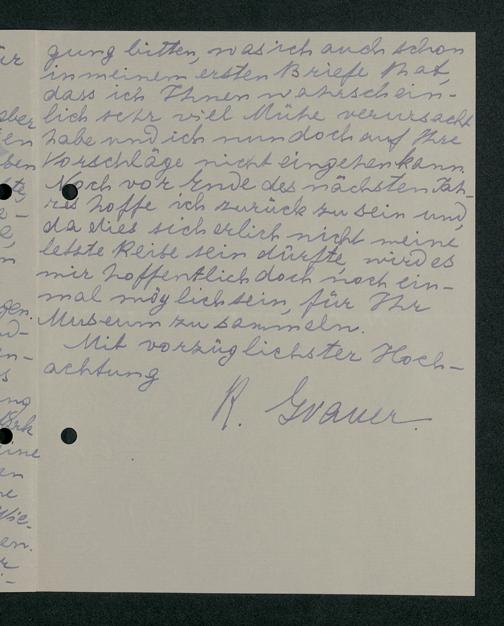 gung bitten, was ich auch schon
in meinem ersten Briefe that,
dass ich Ihnen wahrschein-
lich sehr viel Mühe verursacht
habe und ich nun doch auf Ihre
Vorschläge nicht eingehen kann.
Noch vor Ende des nächsten Jah-
res hoffe ich zurück zu sein und,
da dies sicherlich nicht meine
letzte Reise sein dürfte, wird es
mir hoffentlich doch noch ein-
mal möglich sein, für Ihr
Museum zu sammeln.
Mit vorzüglichster Hoch-
achtung
R. Grauer.